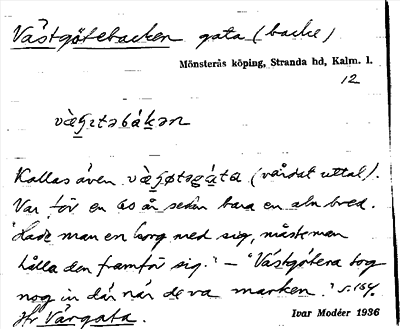 Västgötebacken gata (backe)
Mönsterås köping, Stranda hd, Kalm. l.
12
Kallas även (vårdat uttal).
Var för en 60 år sedan bara en aln bred.
"Hade man en korg med sig, måste man
hålla den framför sig." – "Västgötera tog
nog in där när de va marken." s. 154.
Jfr Vårgata.
Ivar Modéer 1936